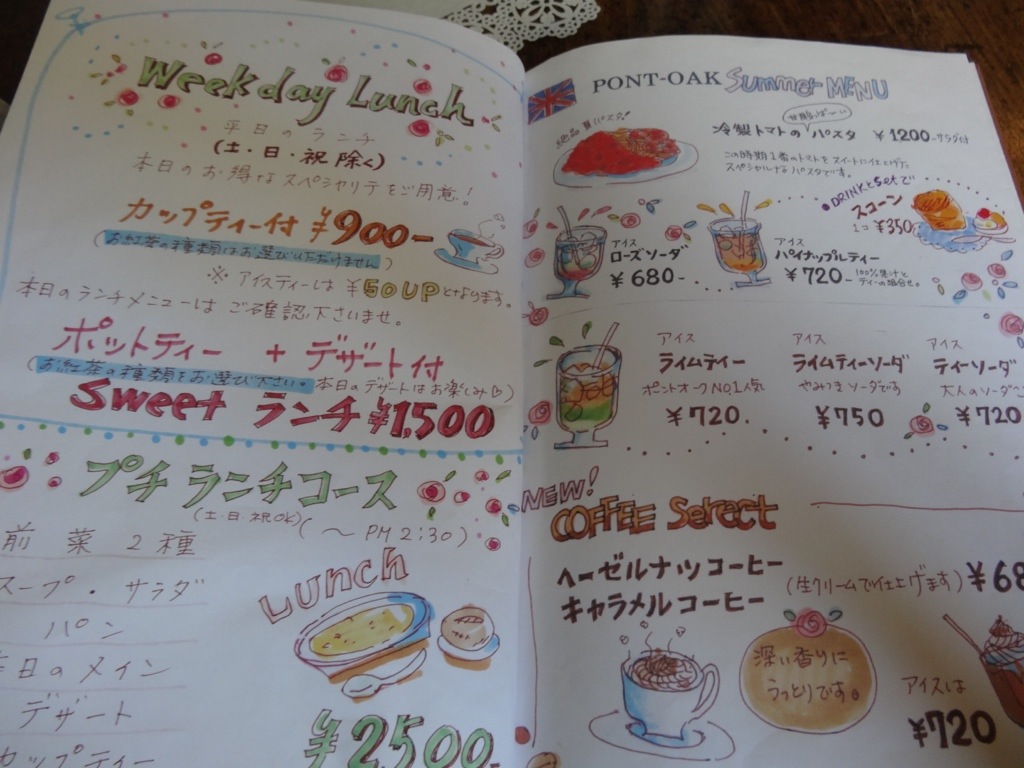 Weekday Lunch
平日のランチ
(土・日・祝 除く)
本日のお得なスペシャリテをご用意!
カップティー付 ¥900-
(お紅茶の種類はお選びいただけません)
※ アイスティーは ¥50UPとなります。
本日のランチメニューは ご確認下さいませ。
ポットティー + デザート付
(お紅茶の種類をお選び下さい。本日のデザートはお楽しみ♡)
Sweet ランチ ¥1,500
プチランチコース
(土・日・祝OK) (〜PM2:30)
前菜2種
スープ・サラダ
パン
日のメイン
デザート
カップティー
Lunch
¥2500-
PONT-OAK Summer MENU
パスタ!
冷製トマトのパスタ ¥1200-サラダ付
この時期1番のトマトをスイートに仕上げた
スペシャルなパスタです。
DRINKとsetで
スコーン
1コ ¥350
アイス
ローズソーダ
¥680-
アイス
パイナップルティー
¥720- 100%果汁と
ティーの組合せ。
アイス
ライムティー
ポントオークNO.1人気
¥720.
アイス
ライムティーソーダ
やみつきソーダです
¥750
アイス
ティーソーダ
大人のソーダ
¥720
NEW!
COFFEE Serect
ヘーゼルナッツコーヒー
キャラメルコーヒー
(生クリームで仕上げます) ¥68
深い香りに
うっとりです。
アイスは
¥720